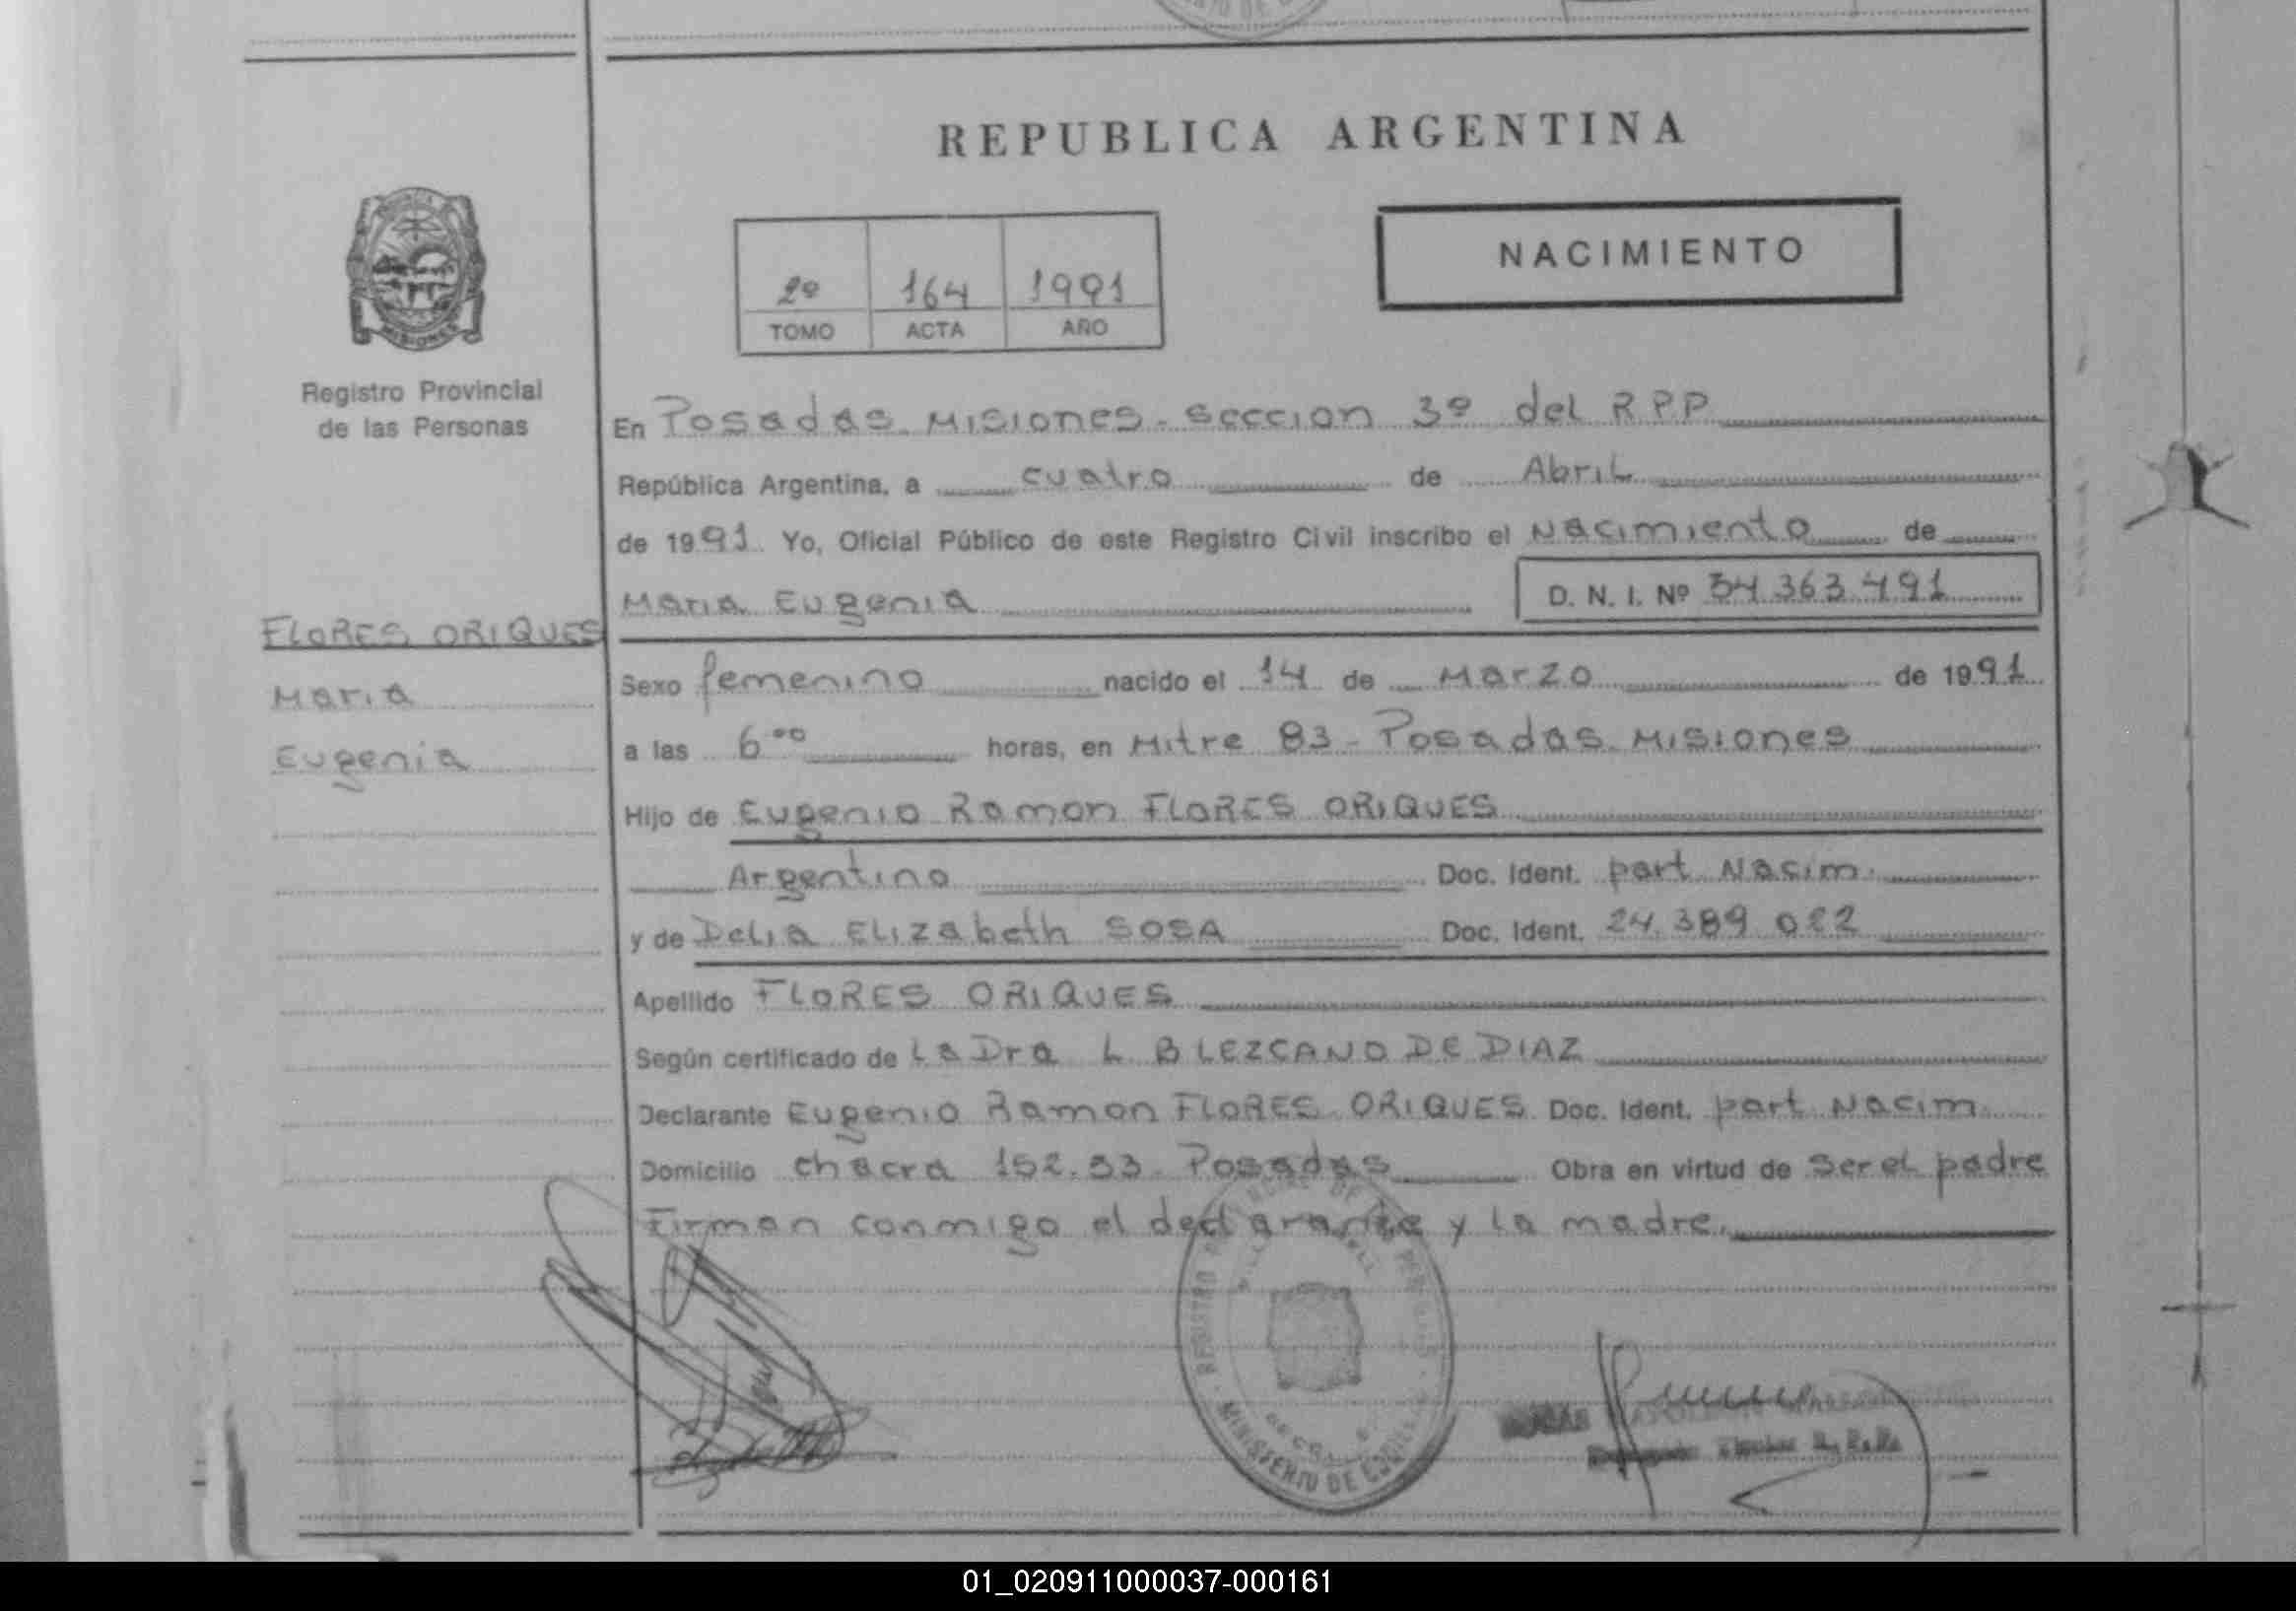 REPUBLICA ARGENTINA
NACIMIENTO
2º 164 1991
TOMO ACTA AÑO
MISIONES
Registro Provincial
de las Personas
FLORES ORIQUES
Maria
Eugenia
En Posadas Misiones - Seccion 3º del R P P
República Argentina, a cuatro de Abril
de 1991. Yo, Oficial Público de este Registro Civil inscribo el Nacimiento de
Maria Eugenia D. N. I. Nº 34.363.491
Sexo femenino nacido el 14 de Marzo de 1991
a las 6 00 horas, en Mitre 83 - Posadas Misiones
Hijo de Eugenio Ramon FLORES ORIQUES
Argentino Doc. Ident. part Nacim.
y de Delia Elizabeth SOSA Doc. Ident. 24.389.022
Apellido FLORES ORIQUES
Según certificado de La Dra L. B LEZCANO DE DIAZ
Declarante Eugenio Ramon FLORES ORIQUES Doc. Ident. part Nacim
Domicilio chacra 152.33 - Posadas Obra en virtud de ser el padre
Firman conmigo el declarante y la madre.
MINISTERIO DE
01_020911000037-000161